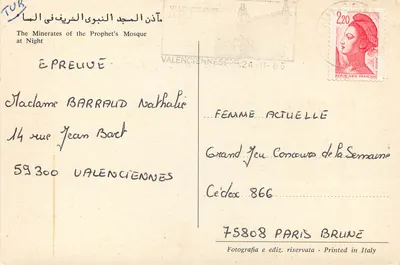 TUB
مآذن المسجد النبوي الشريف في المساء
The Minerates of the Prophet's Mosque
at Night
EPREUVE
Madame BARRAUD Nathalie
14 rue Jean Bart
59300 VALENCIENNES
VALENCIENNES
24-11-86
2,20
FEMME ACTUELLE
Grand Jeu Concours de la Semaine
Cédex 866
75808 PARIS BRUNE
Fotografia e ediz. riservata - Printed in Italy